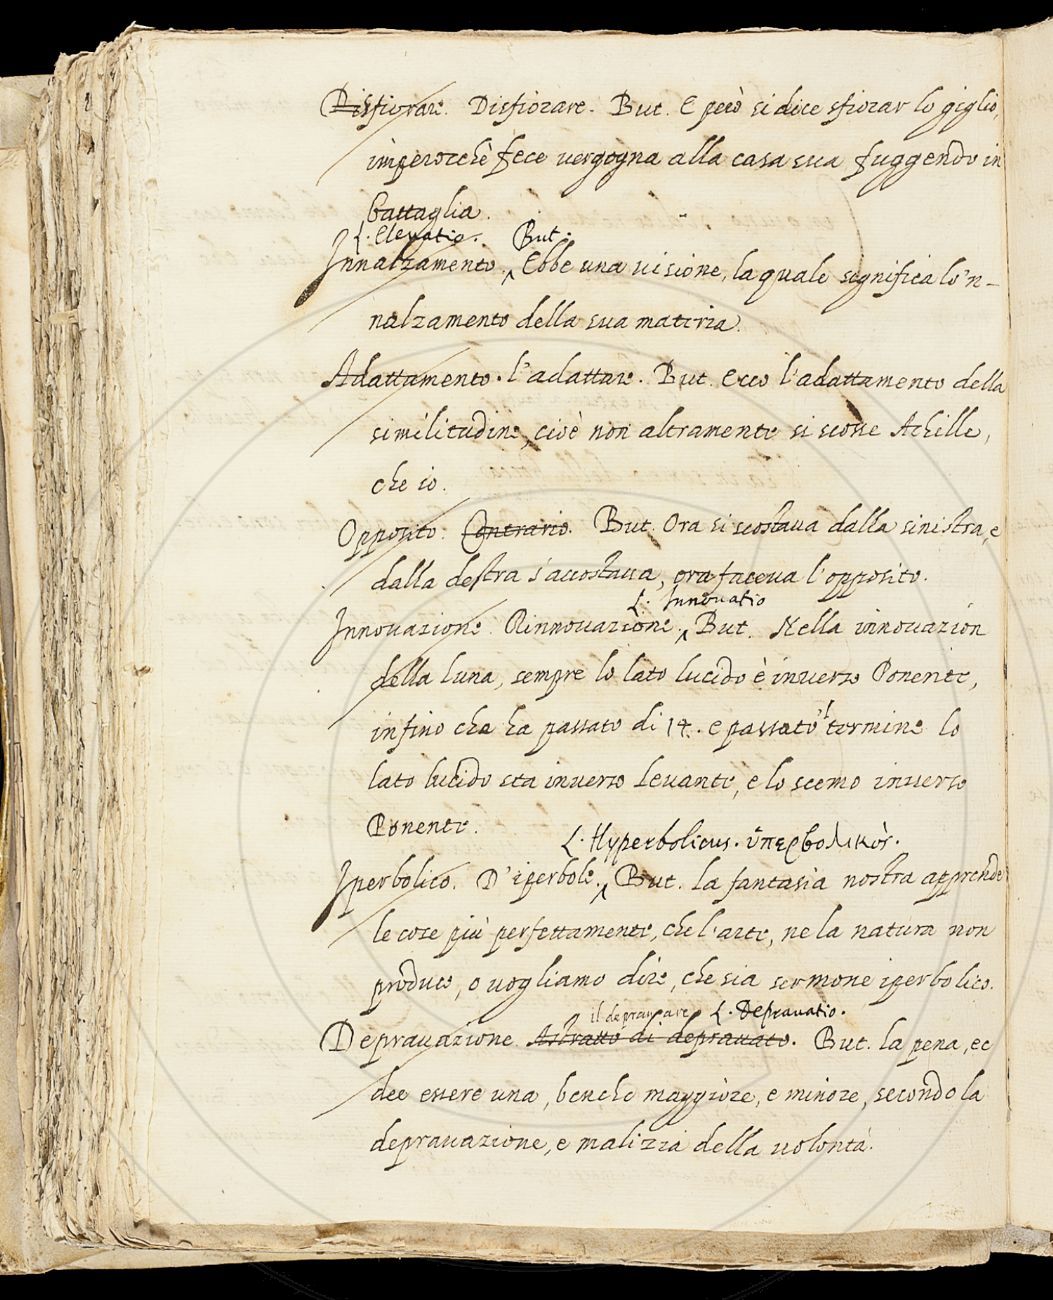 Disfiorare. Disfiorare. But. E però si dice sfiorar lo giglio,
imperocchè fece vergogna alla casa sua fuggendo in
battaglia.
L. Elevatio. But.
Innalzamento. ‸ Ebbe una visione, la quale significa lo'n-
nalzamento della sua materia.
Adattamento. l'adattare. But. Ecco l'adattamento della
similitudine, cioè non altramente si scosse Achille,
che io.
Opposito. Contrario. But. Ora si scostava dalla sinistra, e
dalla destra s'accostava, ora faceva l'opposito.
L. Innovatio
Innovazione. Rinnovazione ‸ But. Nella innovazion
della luna, sempre lo lato lucido è inverso Ponente,
infino che ha passato di 14. e passato 'l termine lo
lato lucido sta inverso Levante, e lo scemo inverso
Ponente.
L. Hyperbolicus. ὑπερβολικὸς.
Iperbolico. D'iperbole. ‸ But. la fantasia nostra apprende
le cose più perfettamente, che l'arte, ne la natura non
produce, o vogliamo dire, che sia sermone iperbolico.
il depravare L. Depravatio.
Depravazione. Astratto di depravato. But. la pena, ec
dee essere una, benche maggiore, e minore, secondo la
depravazione, e malizia della volontà.